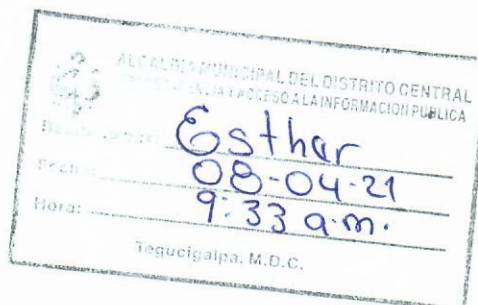 ALCALDIA MUNICIPAL DEL DISTRITO CENTRAL
TRANSPARENCIA Y ACCESO A LA INFORMACION PUBLICA
Recibido por: Esthar
Fecha: 08-04-21
Hora: 9:33 a.m.
Tegucigalpa. M.D.C.